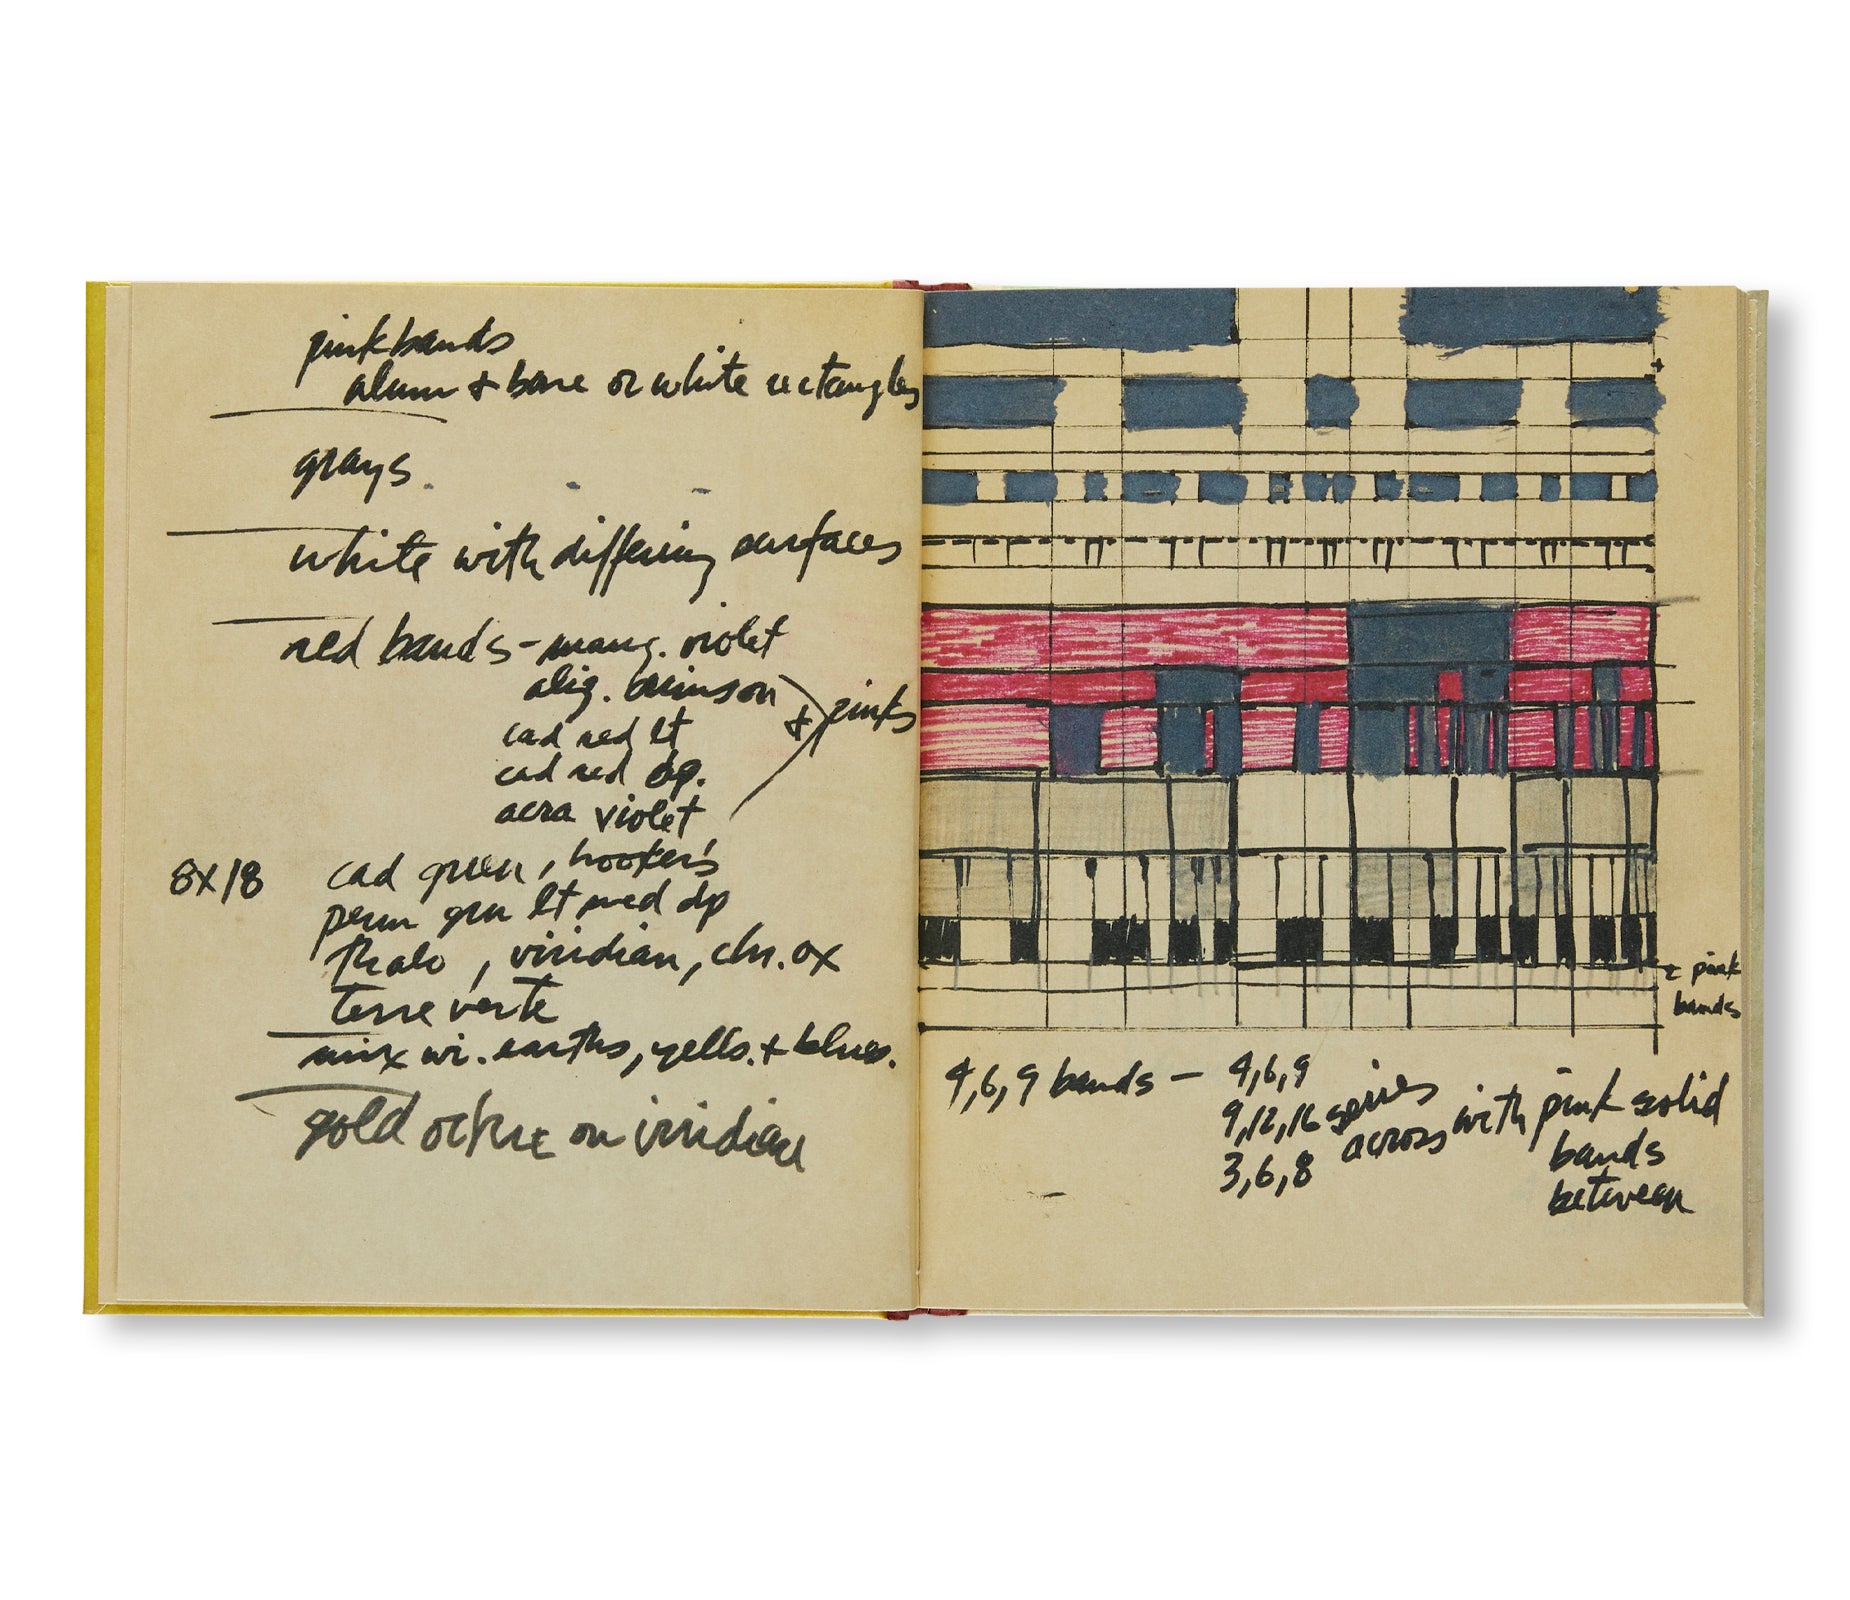 pink bands
alum + bone or white rectangles
grays.
white with differing surfaces
red bands - mang. violet
aliz. crimson
+ pinks
cad red lt
cad red dp.
acra violet
8X18
cad green, hooker's
perm grn lt med dp
thalo, viridian, chr. ox
terre verte
mix wi. earths, yells. + blues.
gold ochre on viridian
pink
bands
4,6,9 bands — 4,6,9
9,12,16 series
across with pink solid
3,6,8
bands
between